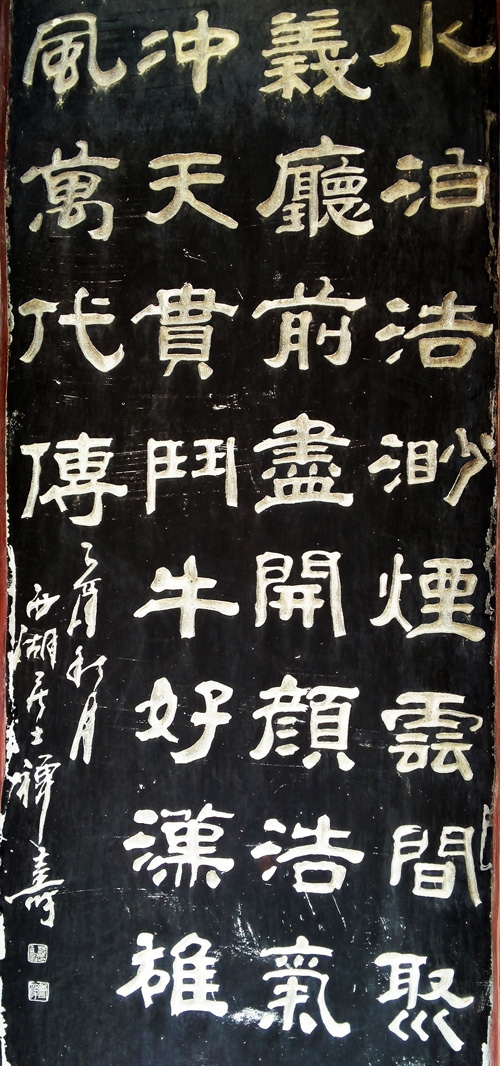 水泊浩渺煙雲間聚
義廳前盡開顏浩氣
沖天貫鬥牛好漢雄
風萬代傳
秋月
西湖居士禪壽